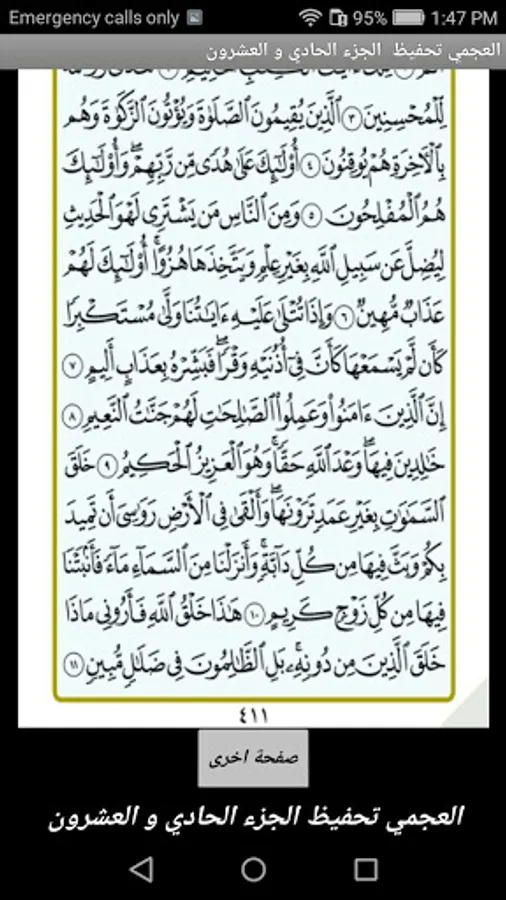 Emergency calls only
95% 1:47 PM
العجمي تحفيظ الجزء الحادي و العشرون
لِّلْمُحْسِنِينَ ٣ ٱلَّذِينَ يُقِيمُونَ ٱلصَّلَوٰةَ وَيُؤْتُونَ ٱلزَّكَوٰةَ وَهُم
بِٱلْأَخِرَةِ هُمْ يُوقِنُونَ ٤ أُو۟لَٰٓئِكَ عَلَىٰ هُدًى مِّن رَّبِّهِمْ ۖ وَأُو۟لَٰٓئِكَ
هُمُ ٱلْمُفْلِحُونَ ٥ وَمِنَ ٱلنَّاسِ مَن يَشْتَرِى لَهْوَ ٱلْحَدِيثِ
لِيُضِلَّ عَن سَبِيلِ ٱللَّهِ بِغَيْرِ عِلْمٍ وَيَتَّخِذَهَا هُزُوًا ۚ أُو۟لَٰٓئِكَ لَهُمْ
عَذَابٌ مُّهِينٌ ٦ وَإِذَا تُتْلَىٰ عَلَيْهِ ءَايَٰتُنَا وَلَّىٰ مُسْتَكْبِرًا
كَأَن لَّمْ يَسْمَعْهَا كَأَنَّ فِىٓ أُذُنَيْهِ وَقْرًا ۖ فَبَشِّرْهُ بِعَذَابٍ أَلِيمٍ ٧
إِنَّ ٱلَّذِينَ ءَامَنُوا۟ وَعَمِلُوا۟ ٱلصَّٰلِحَٰتِ لَهُمْ جَنَّٰتُ ٱلنَّعِيمِ ٨
خَٰلِدِينَ فِيهَا ۖ وَعْدَ ٱللَّهِ حَقًّا ۚ وَهُوَ ٱلْعَزِيزُ ٱلْحَكِيمُ ٩ خَلَقَ
ٱلسَّمَٰوَٰتِ بِغَيْرِ عَمَدٍ تَرَوْنَهَا ۖ وَأَلْقَىٰ فِى ٱلْأَرْضِ رَوَٰسِىَ أَن تَمِيدَ
بِكُمْ وَبَثَّ فِيهَا مِن كُلِّ دَآبَّةٍ ۚ وَأَنزَلْنَا مِنَ ٱلسَّمَآءِ مَآءً فَأَنۢبَتْنَا
فِيهَا مِن كُلِّ زَوْجٍ كَرِيمٍ ١٠ هَٰذَا خَلْقُ ٱللَّهِ فَأَرُونِى مَاذَا
خَلَقَ ٱلَّذِينَ مِن دُونِهِۦ ۚ بَلِ ٱلظَّٰلِمُونَ فِى ضَلَٰلٍ مُّبِينٍ ١١
٤١١
صفحة اخرى
العجمي تحفيظ الجزء الحادي و العشرون